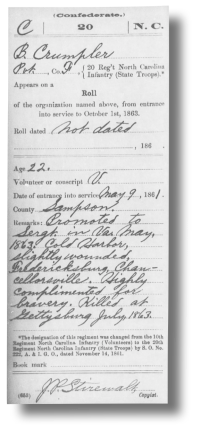 (Confederate.)
C 20 N. C.
B. Crumpler
Pvt., Co. F, 20 Reg't North Carolina
Infantry (State Troops).*
Appears on a
Roll
of the organization named above, from entrance
into service to October 1st, 1863.
Roll dated Not dated
, 186 .
Age 22.
Volunteer or conscript V
Date of entrance into service May 9, 1861.
County Sampson
Remarks: Promoted to
Sergt. in Vas. May,
1863. Cold Harbor,
slightly wounded,
Fredericksburg, Chan-
cellorsville. Highly
complimented for
bravery. Killed at
Gettysburg July, 1863.
*The designation of this regiment was changed from the 10th
Regiment North Carolina Infantry (Volunteers) to the 20th
Regiment North Carolina Infantry (State Troops) by S. O. No.
222, A. & I. G. O., dated November 14, 1861.
Book mark
J. P. Stirewalt
Copyist.